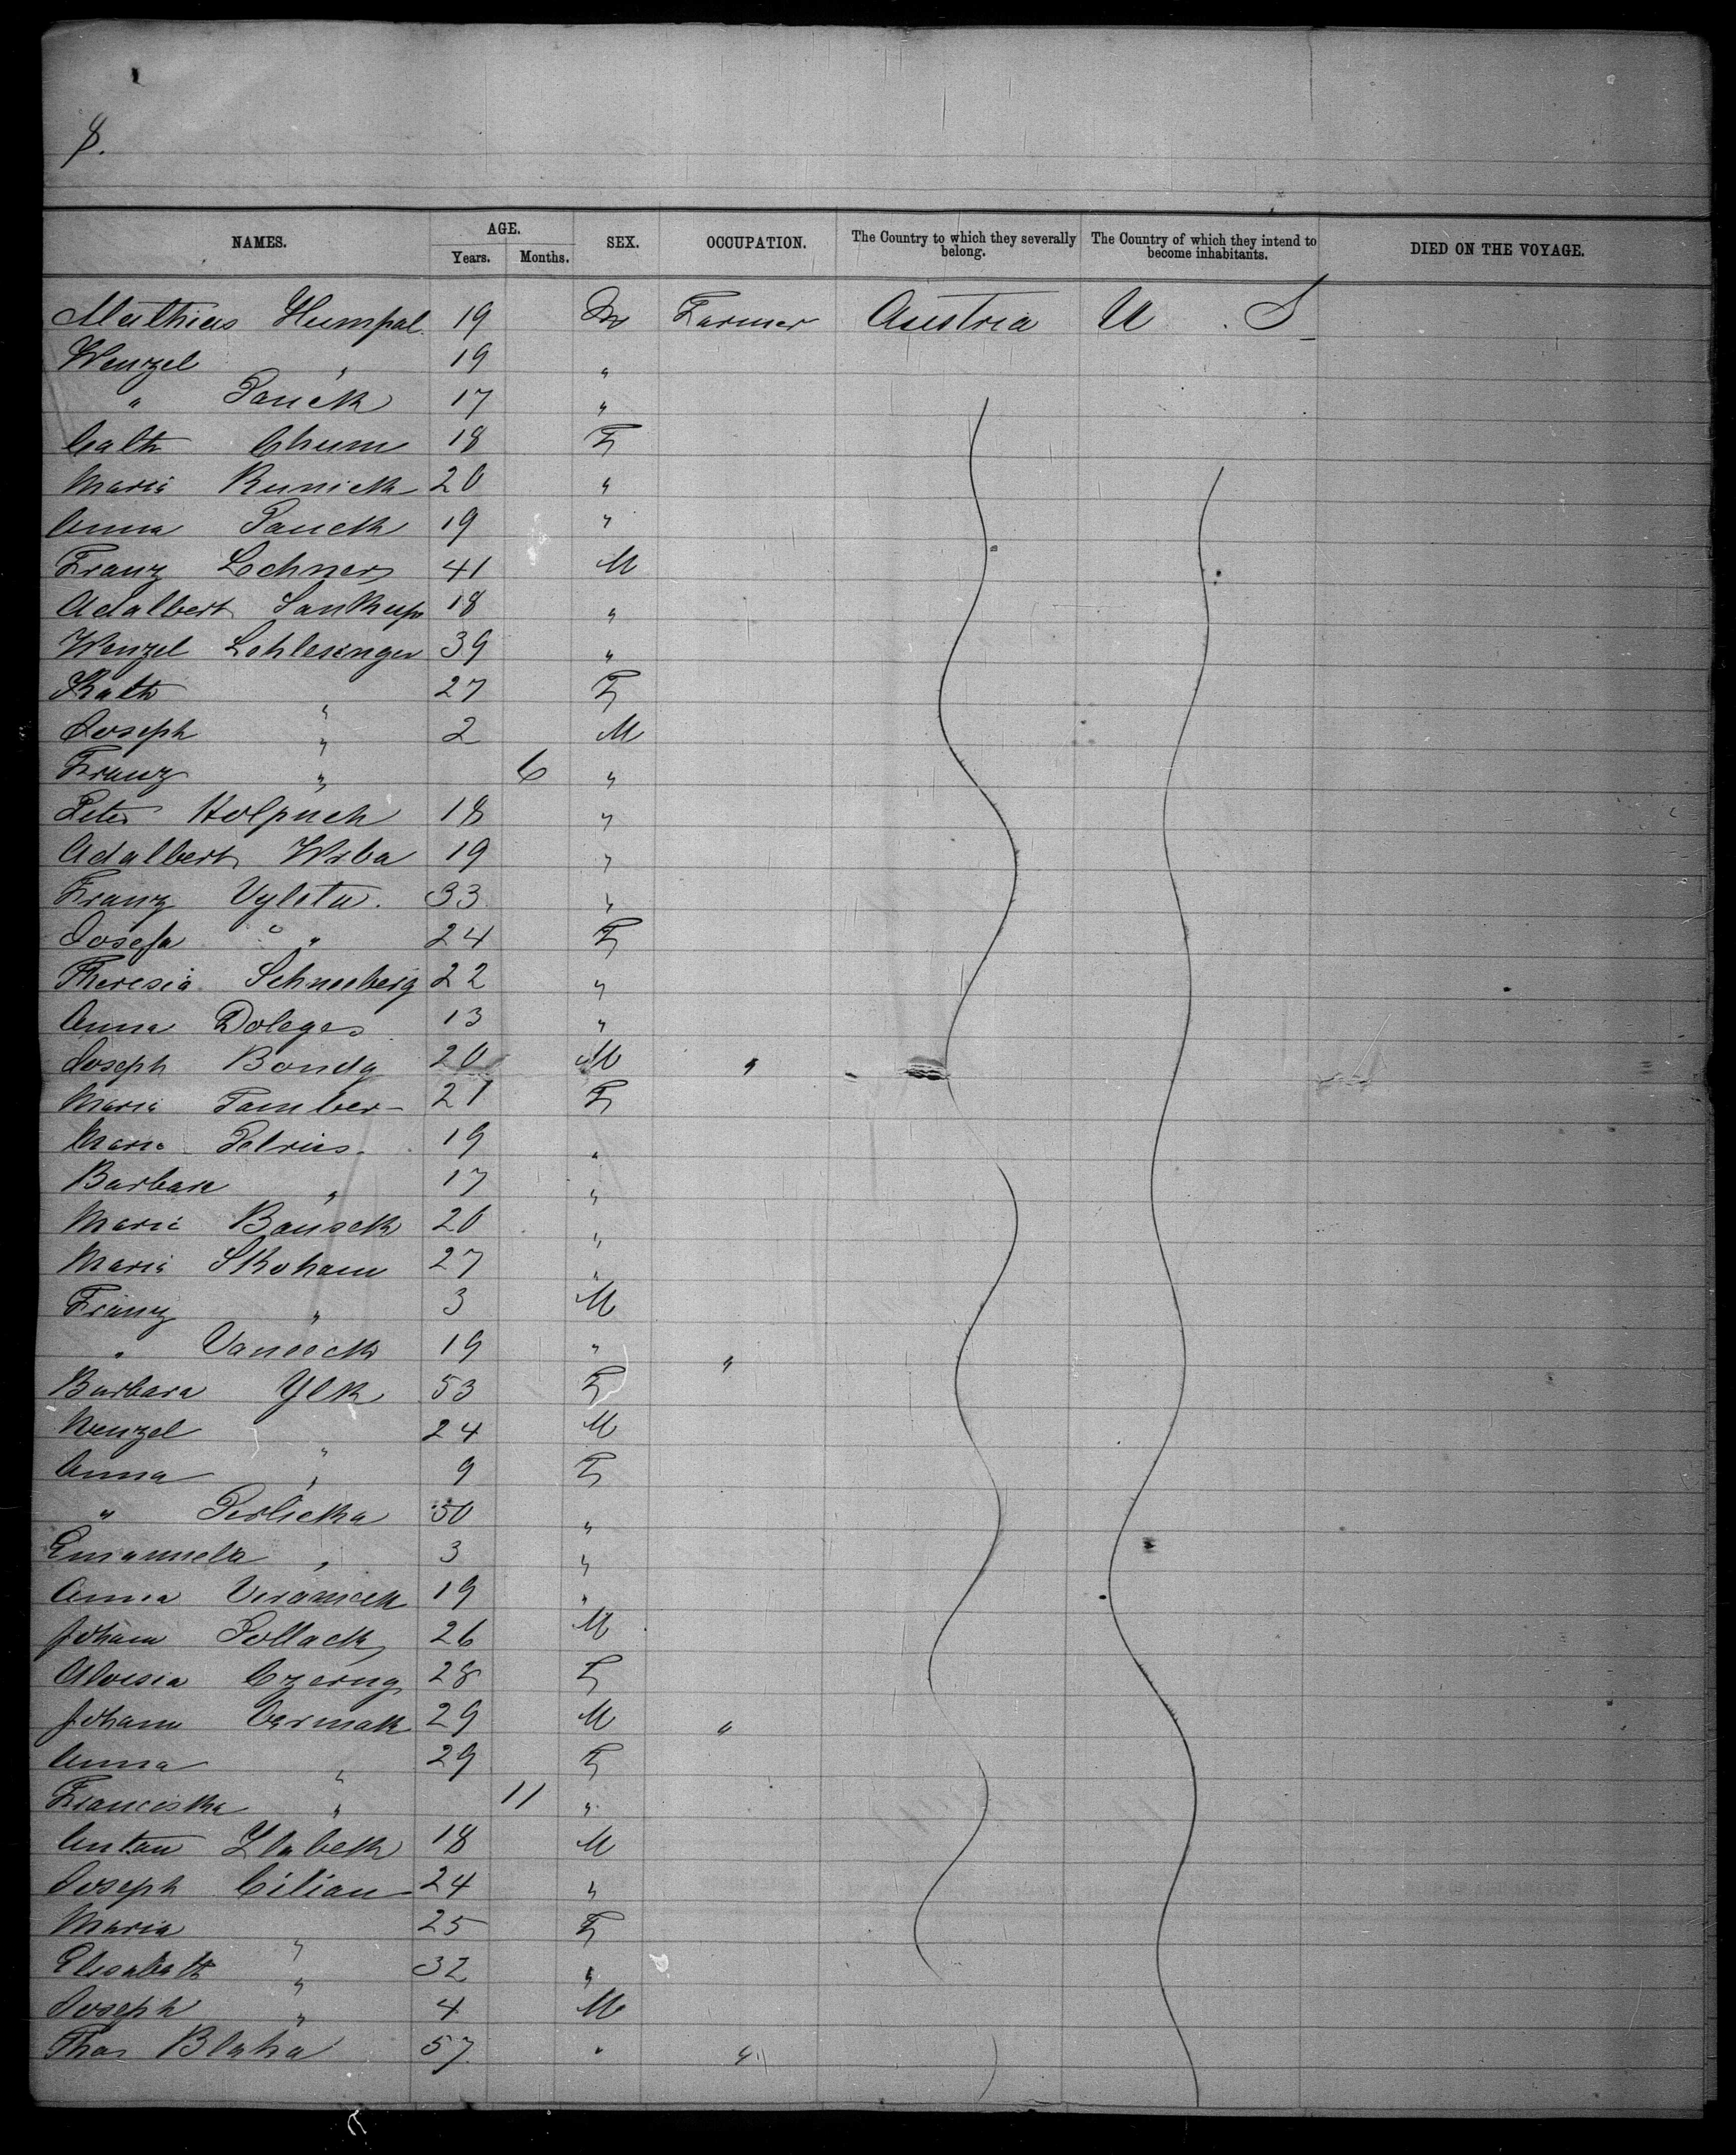 8.
NAMES. AGE. SEX. OCCUPATION. The Country to which they severally belong. The Country of which they intend to become inhabitants. DIED ON THE VOYAGE.
Years. Months.
Mathias Humpal 19 M Farmer Austria U. S
Wenzel " 19 "
" Panek 17 "
Cath Chum 18 F
Maria Kunick 20 "
Anna Panek 19 "
Franz Lechner 41 M
Adalbert Sankup 18 "
Wenzel Schlesinger 39 "
Kath " 27 F
Joseph " 2 M
Franz " 6 "
Peter Holpuch 18 "
Adalbert Wrba 19 "
Franz Vyleta. 33 "
Josefa " 24 F
Theresia Schneeberg 22 "
Anna 13 "
Joseph Bonda 20 M "
Maria 21 F
Maria 19 "
Barbara " 17 "
Maria 20 "
Maria 27 "
Franz " 3 M
" Vaneck 19 " "
Barbara 53 F
Wenzel " 24 M
Anna " 9 F
" Perlicka 50 "
Emanuela " 3 "
Anna 19 "
Johann Pollack 26 M
Aloisia Czerny 28 F
Johann Cermak 29 M "
Anna " 29 F
Franciska " 11 "
Anton Zlabek 18 M
Joseph Cilian 24 "
Maria " 25 F
Elisabeth " 32 "
Joseph " 4 M
Thos Blaha 57 " "